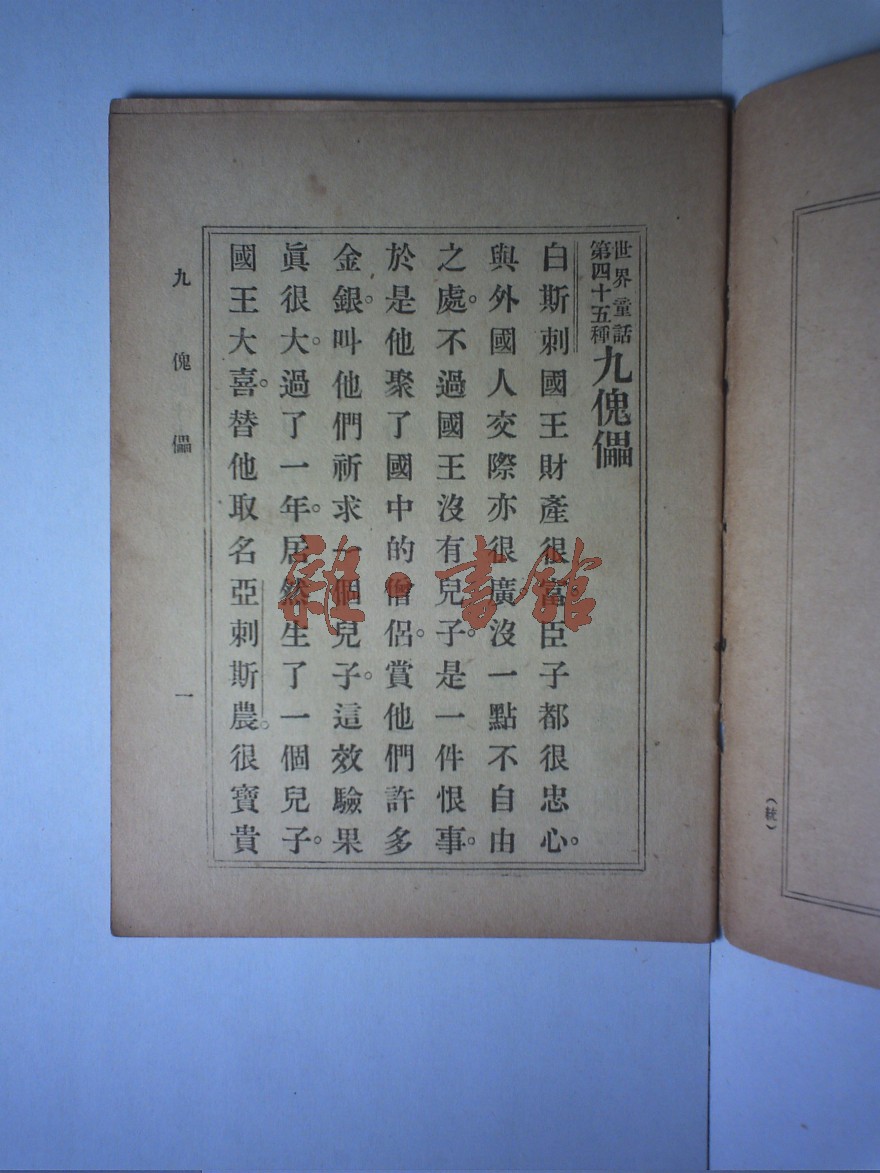 世界童話
第四十五種
九傀儡
白斯刺國王財產很富。臣子都很忠心。
與外國人交際亦很廣沒一點不自由
之處。不過國王沒有兒子。是一件恨事。
於是他聚了國中的僧侶。賞他們許多
金銀。叫他們祈求一個兒子。這效驗果
眞很大。過了一年。居然生了一個兒子。
國王大喜。替他取名亞刺斯農。很寶貴
九傀儡
一
雜·書館